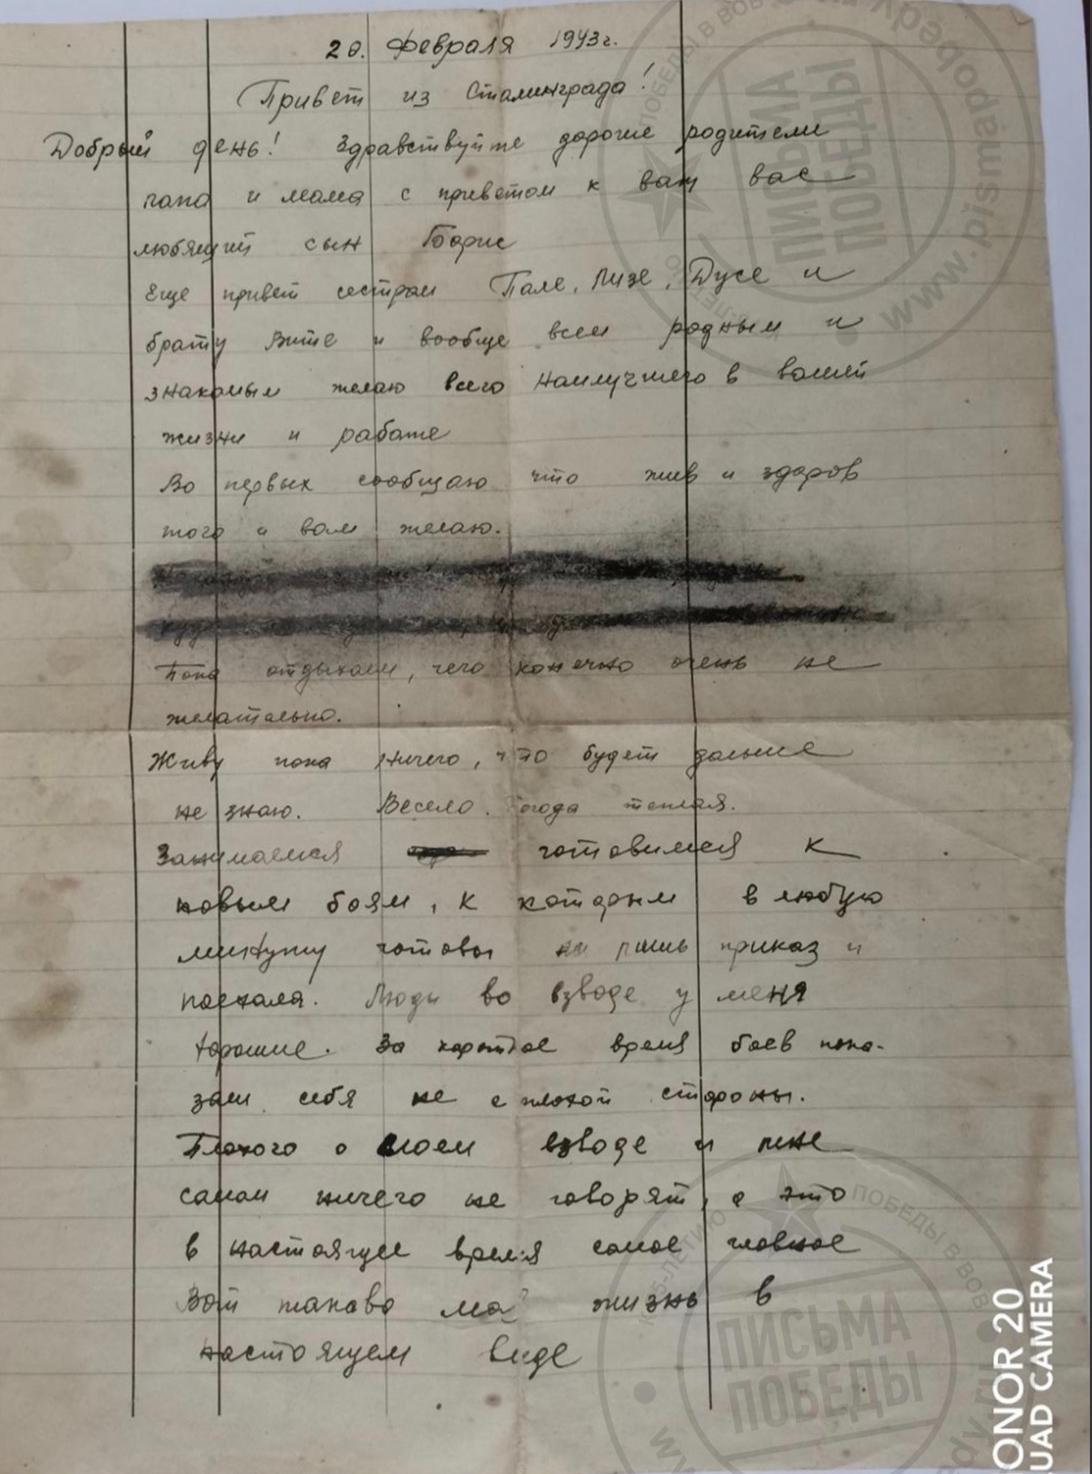 20. Февраля 1943г.
Привет из Сталинграда!
Добрый день! Здравствуйте дорогие родители
папа и мама с приветом к вам вас
любящий сын Борис
Еще привет сестрам Пале, Лизе, Дусе и
брату Вите и вообще всем родным и
знакомым желаю всего наилучшего в вашей
жизни и работе
Во первых сообщаю что жив и здоров
того и вам желаю.
Пока отдыхаем, чего конечно очень не
желательно.
Живу пока ничего, что будет дальше
не знаю. Весело. Погода теплая.
Занимаемся готовимся к
новым боям, к которым в любую
минуту готовы лишь приказ и
поехала. Люди во взводе у меня
хорошие. За короткое время боев пока-
зали себя не с плохой стороны.
Плохого о моем взводе и мне
самом ничего не говорят, а это
в настоящее время самое главное
Вот такова моя жизнь в
настоящем виде
ПИСЬМА ПОБЕДЫ
www.pismapobedy
К 75-ЛЕТИЮ ПОБЕДЫ В ВОВ
ПИСЬМА
ПОБЕДЫ
ONOR 20
UAD CAMERA